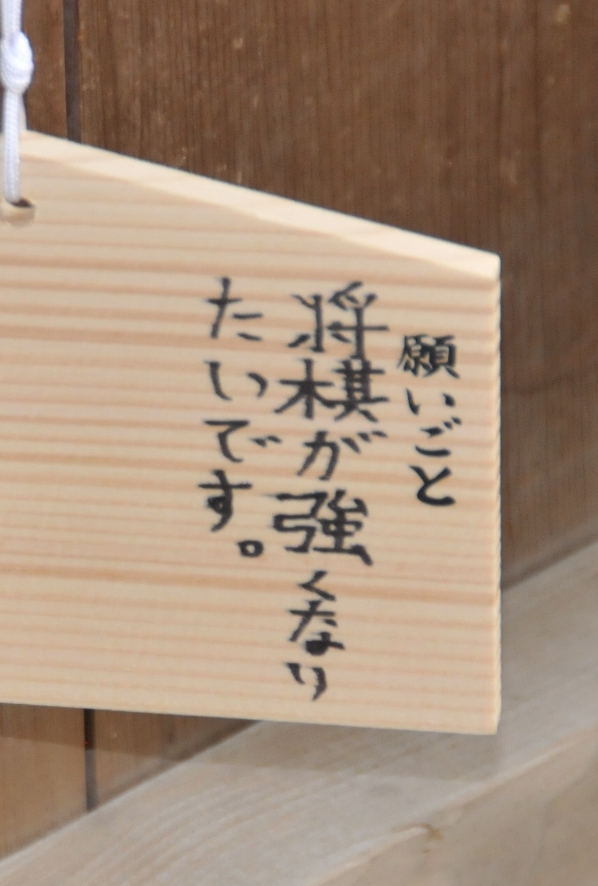 願いごと
将棋が強くなり
たいです。